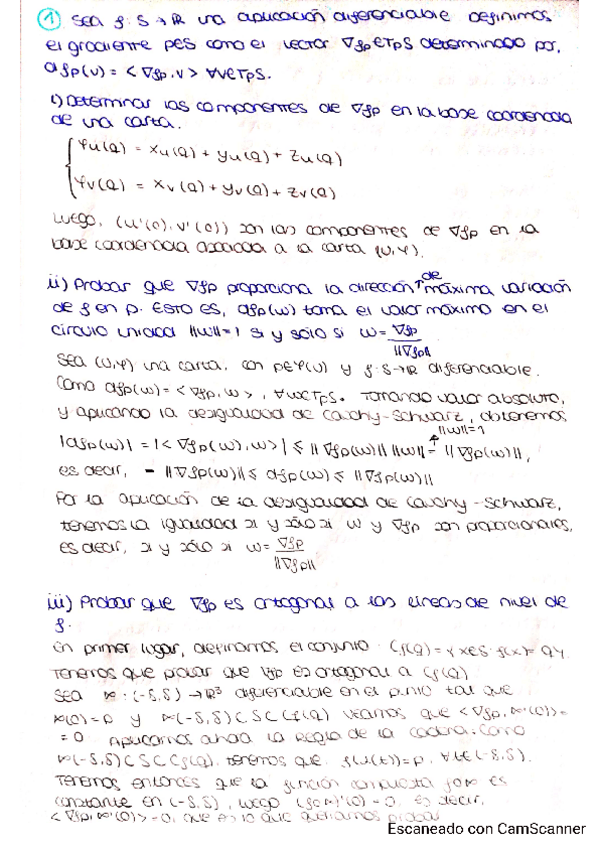 ① Sea f: S → ℝ una aplicación diferenciable definimos
el gradiente p∈S como el vector ∇fp ∈ TpS determinado por,
dfp(v) = < ∇fp, v > ∀v∈TpS.
i) Determinar las componentes de ∇fp en la base coordenada
de una carta.
φu(Q) = xu(Q) + yu(Q) + zu(Q)
φv(Q) = xv(Q) + yv(Q) + zv(Q)
Luego, (u'(0), v'(0)) son las componentes de ∇fp en la
base coordenada asociada a la carta (U, φ).
ii) Probar que ∇fp proporciona la dirección de máxima variación
de f en p. Esto es, dfp(w) toma el valor máximo en el
círculo unidad ||w||=1 si y sólo si w = ∇fp / ||∇fp||
Sea (U, φ) una carta, con p∈φ(U) y f: S→ℝ diferenciable.
Como dfp(w) = < ∇fp, w >, ∀w∈TpS. Tomando valor absoluto,
y aplicando la desigualdad de Cauchy-Schwarz, obtenemos
||w||=1
|dfp(w)| = |< ∇fp(w), w >| ≤ ||∇fp(w)|| ||w|| = ||∇fp(w)||,
es decir, - ||∇fp(w)|| ≤ dfp(w) ≤ ||∇fp(w)||
Por la aplicación de la desigualdad de Cauchy-Schwarz,
tenemos la igualdad si y sólo si w y ∇fp son proporcionales,
es decir, si y sólo si w = ∇fp / ||∇fp||
iii) Probar que ∇fp es ortogonal a las líneas de nivel de
f.
En primer lugar, definamos el conjunto Cf(Q) = { x∈S: f(x) = Q }.
Tenemos que probar que ∇fp es ortogonal a Cf(Q)
Sea α: (-δ, δ) → ℝ³ diferenciable en el punto tal que
α(0) = p y α(-δ, δ) ⊂ S ⊂ Cf(Q) veamos que < ∇fp, α'(0) > =
= 0. Aplicamos ahora la Regla de la cadena. Como
α(-δ, δ) ⊂ S ⊂ Cf(Q), tenemos que f(α(t)) = p, ∀t∈(-δ, δ).
Tenemos entonces que la función compuesta f∘α es
constante en (-δ, δ), luego (f∘α)'(0) = 0, es decir,
< ∇fp, α'(0) > = 0, que es lo que queríamos probar
Escaneado con CamScanner